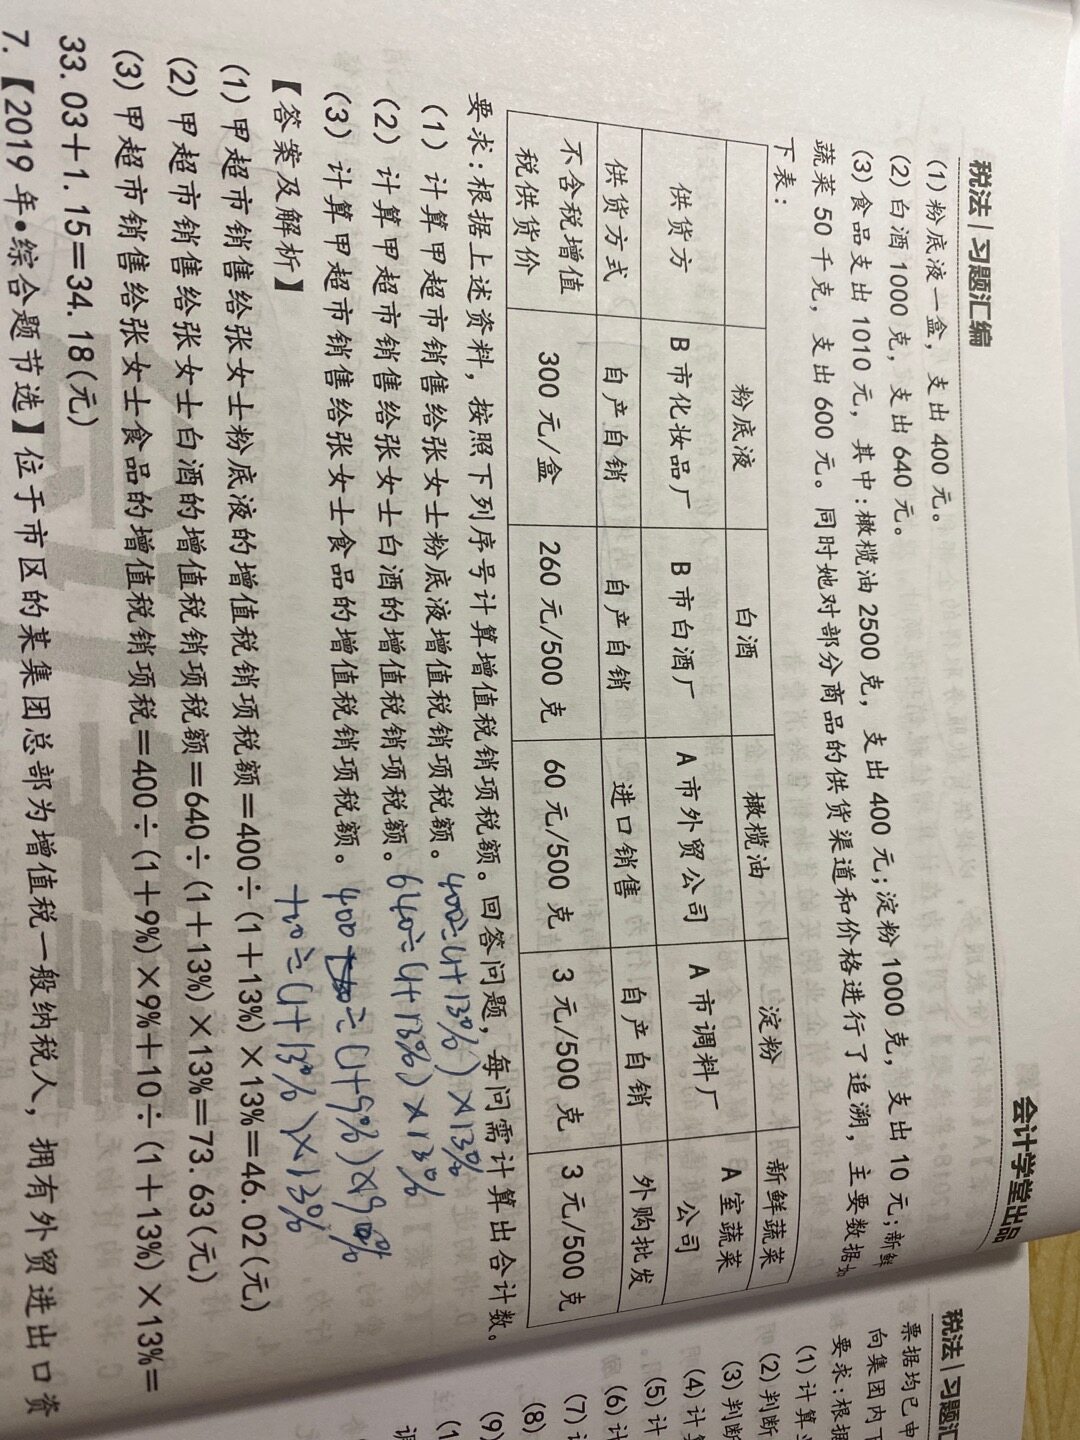 税法|习题汇编
会计学堂出品
(1)粉底液一盒，支出 400 元。
(2)白酒 1000 克，支出 640 元。
(3)食品支出 1010 元，其中:橄榄油 2500 克，支出 400 元;淀粉 1000 克，支出 10 元;新鲜
蔬菜 50 千克，支出 600 元。同时她对部分商品的供货渠道和价格进行了追溯，主要数据如
下表:
粉底液 白酒 橄榄油 淀粉 新鲜蔬菜
供货方 B 市化妆品厂 B 市白酒厂 A 市外贸公司 A 市调料厂 A 室蔬菜
公司
供货方式 自产自销 自产自销 进口销售 自产自销 外购批发
不含税增值
税供货价
300 元/盒 260 元/500 克 60 元/500 克 3 元/500 克 3 元/500 克
要求:根据上述资料，按照下列序号计算增值税销项税额。回答问题，每问需计算出合计数。
(1)计算甲超市销售给张女士粉底液增值税销项税额。 400÷(1+13%)×13%
(2)计算甲超市销售给张女士白酒的增值税销项税额。 640÷(1+13%)×13%
(3)计算甲超市销售给张女士食品的增值税销项税额。 400÷(1+9%)×9%
+10÷(1+13%)×13%
【答案及解析】
(1)甲超市销售给张女士粉底液的增值税销项税额=400÷(1+13%)×13%=46.02(元)
(2)甲超市销售给张女士白酒的增值税销项税额=640÷(1+13%)×13%=73.63(元)
(3)甲超市销售给张女士食品的增值税销项税=400÷(1+9%)×9%+10÷(1+13%)×13%=
33.03+1.15=34.18(元)
7.【2019 年•综合题节选】位于市区的某集团总部为增值税一般纳税人，拥有外贸进出口资
税法|习题汇
票据均已申
向集团内下
要求:根据
(1)计算
(2)判断
(3)判断
(4)计算
(5)计
(6)计
(7)
(8)
(9)